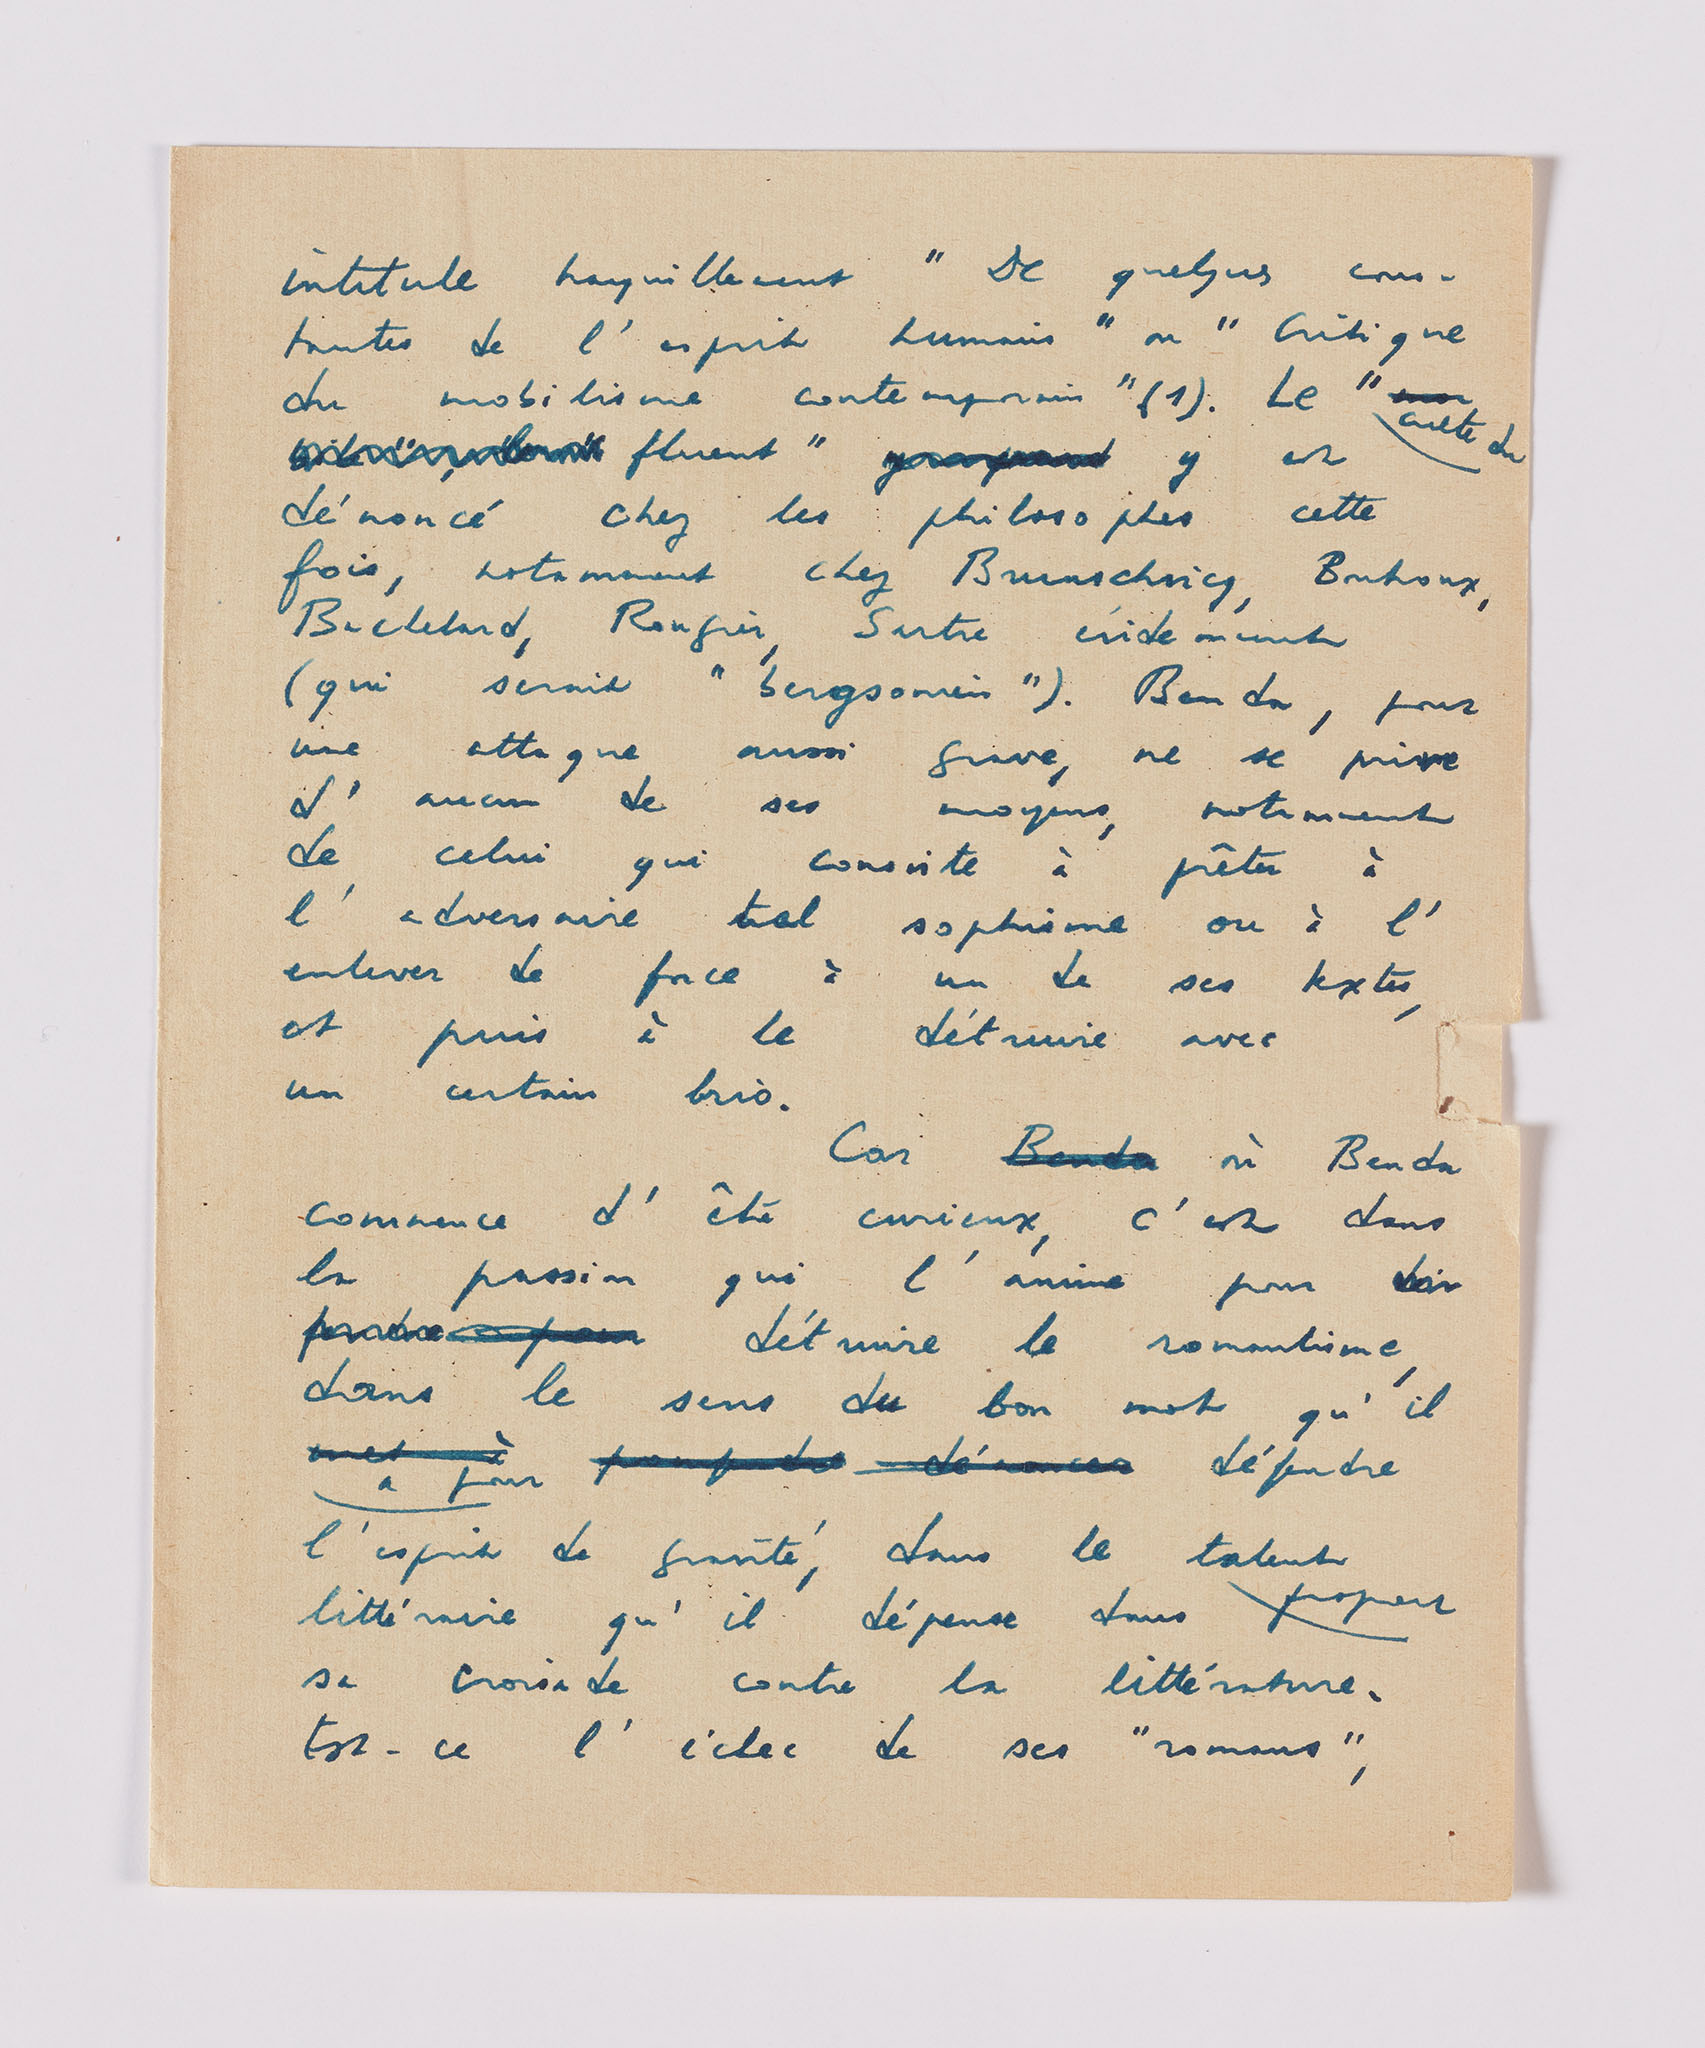 intitule tranquillement " De quelques cons-
tantes de l'esprit humain " ou " Critique
du mobilisme contemporain " (1). Le "
culte du
fluent " y est
dénoncé chez les philosophes cette
fois, notamment chez Brunschvicg, Boutroux,
Bachelard, Rougier, Sartre évidemment
(qui serait " bergsonien "). Benda, pour
une attaque aussi grave, ne se prive
d'aucun de ses moyens, notamment
de celui qui consiste à prêter à
l'adversaire tel sophisme ou à l'
enlever de force à un de ses textes,
et puis à le détruire avec
un certain brio.
Car Benda où Benda
commence d'être curieux, c'est dans
la passion qui l'anime pour
détruire le romantisme,
dans le sens du bon mot qu'il
met à dénoncer défendre
a pour
l'esprit de gravité, dans le talent
littéraire qu'il dépense dans
sa croisade contre la littérature.
Est-ce l'échec de ses "romans",